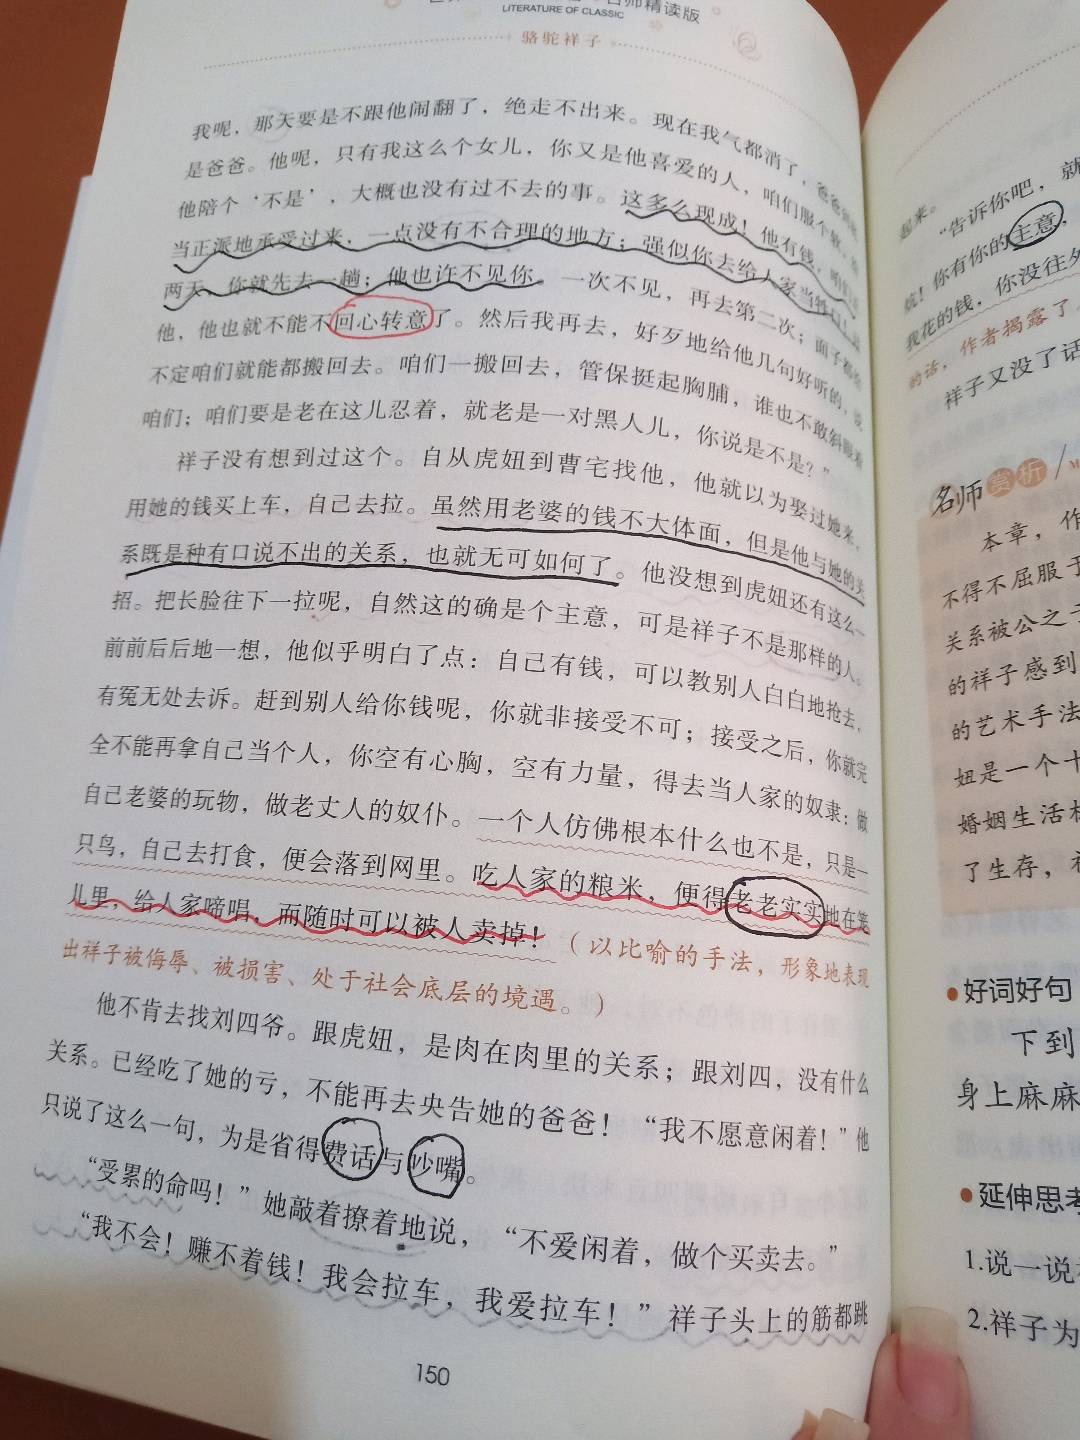 名师精读版
LITERATURE OF CLASSIC
骆驼祥子
我呢，那天要是不跟他闹翻了，绝走不出来。现在我气都消了，爸爸
是爸爸。他呢，只有我这么个女儿，你又是他喜爱的人，咱们服个软，
他陪个‘不是’，大概也没有过不去的事。这多么现成！他有钱，咱们
当正派地承受过来，一点没有不合理的地方；强似你去给人家当牲口！
两天，你就先去一趟；他也许不见你。一次不见，再去第二次；面子都给
他，他也就不能不回心转意了。然后我再去，好歹地给他几句好听的，说
不定咱们就能都搬回去。咱们一搬回去，管保挺起胸脯，谁也不敢斜眼看
咱们；咱们要是老在这儿忍着，就老是一对黑人儿，你说是不是？”
祥子没有想到过这个。自从虎妞到曹宅找他，他就以为娶过她来，
用她的钱买上车，自己去拉。虽然用老婆的钱不大体面，但是他与她的关
系既是种有口说不出的关系，也就无可如何了。他没想到虎妞还有这么一
招。把长脸往下一拉呢，自然这的确是个主意，可是祥子不是那样的人。
前前后后地一想，他似乎明白了点：自己有钱，可以教别人白白地抢去，
有冤无处去诉。赶到别人给你钱呢，你就非接受不可；接受之后，你就完
全不能再拿自己当个人，你空有心胸，空有力量，得去当人家的奴隶：做
自己老婆的玩物，做老丈人的奴仆。一个人仿佛根本什么也不是，只是一
只鸟，自己去打食，便会落到网里。吃人家的粮米，便得老老实实地在笼
儿里，给人家啼唱，而随时可以被人卖掉！（以比喻的手法，形象地表现
出祥子被侮辱、被损害、处于社会底层的境遇。）
他不肯去找刘四爷。跟虎妞，是肉在肉里的关系；跟刘四，没有什么
关系。已经吃了她的亏，不能再去央告她的爸爸！“我不愿意闲着！”他
只说了这么一句，为是省得费话与吵嘴。
“受累的命吗！”她敲着撩着地说，“不爱闲着，做个买卖去。”
“我不会！赚不着钱！我会拉车，我爱拉车！”祥子头上的筋都跳
150
起来。
“告诉你吧，就
炕！你有你的主意，
我花的钱，你没往外
的话，作者揭露了
祥子又没了话
名师赏析
本章，作
不得不屈服于
关系被公之于
的祥子感到
的艺术手法
妞是一个十
婚姻生活
了生存，
好词好句
下到
身上麻麻
延伸思考
1.说一说
2.祥子为